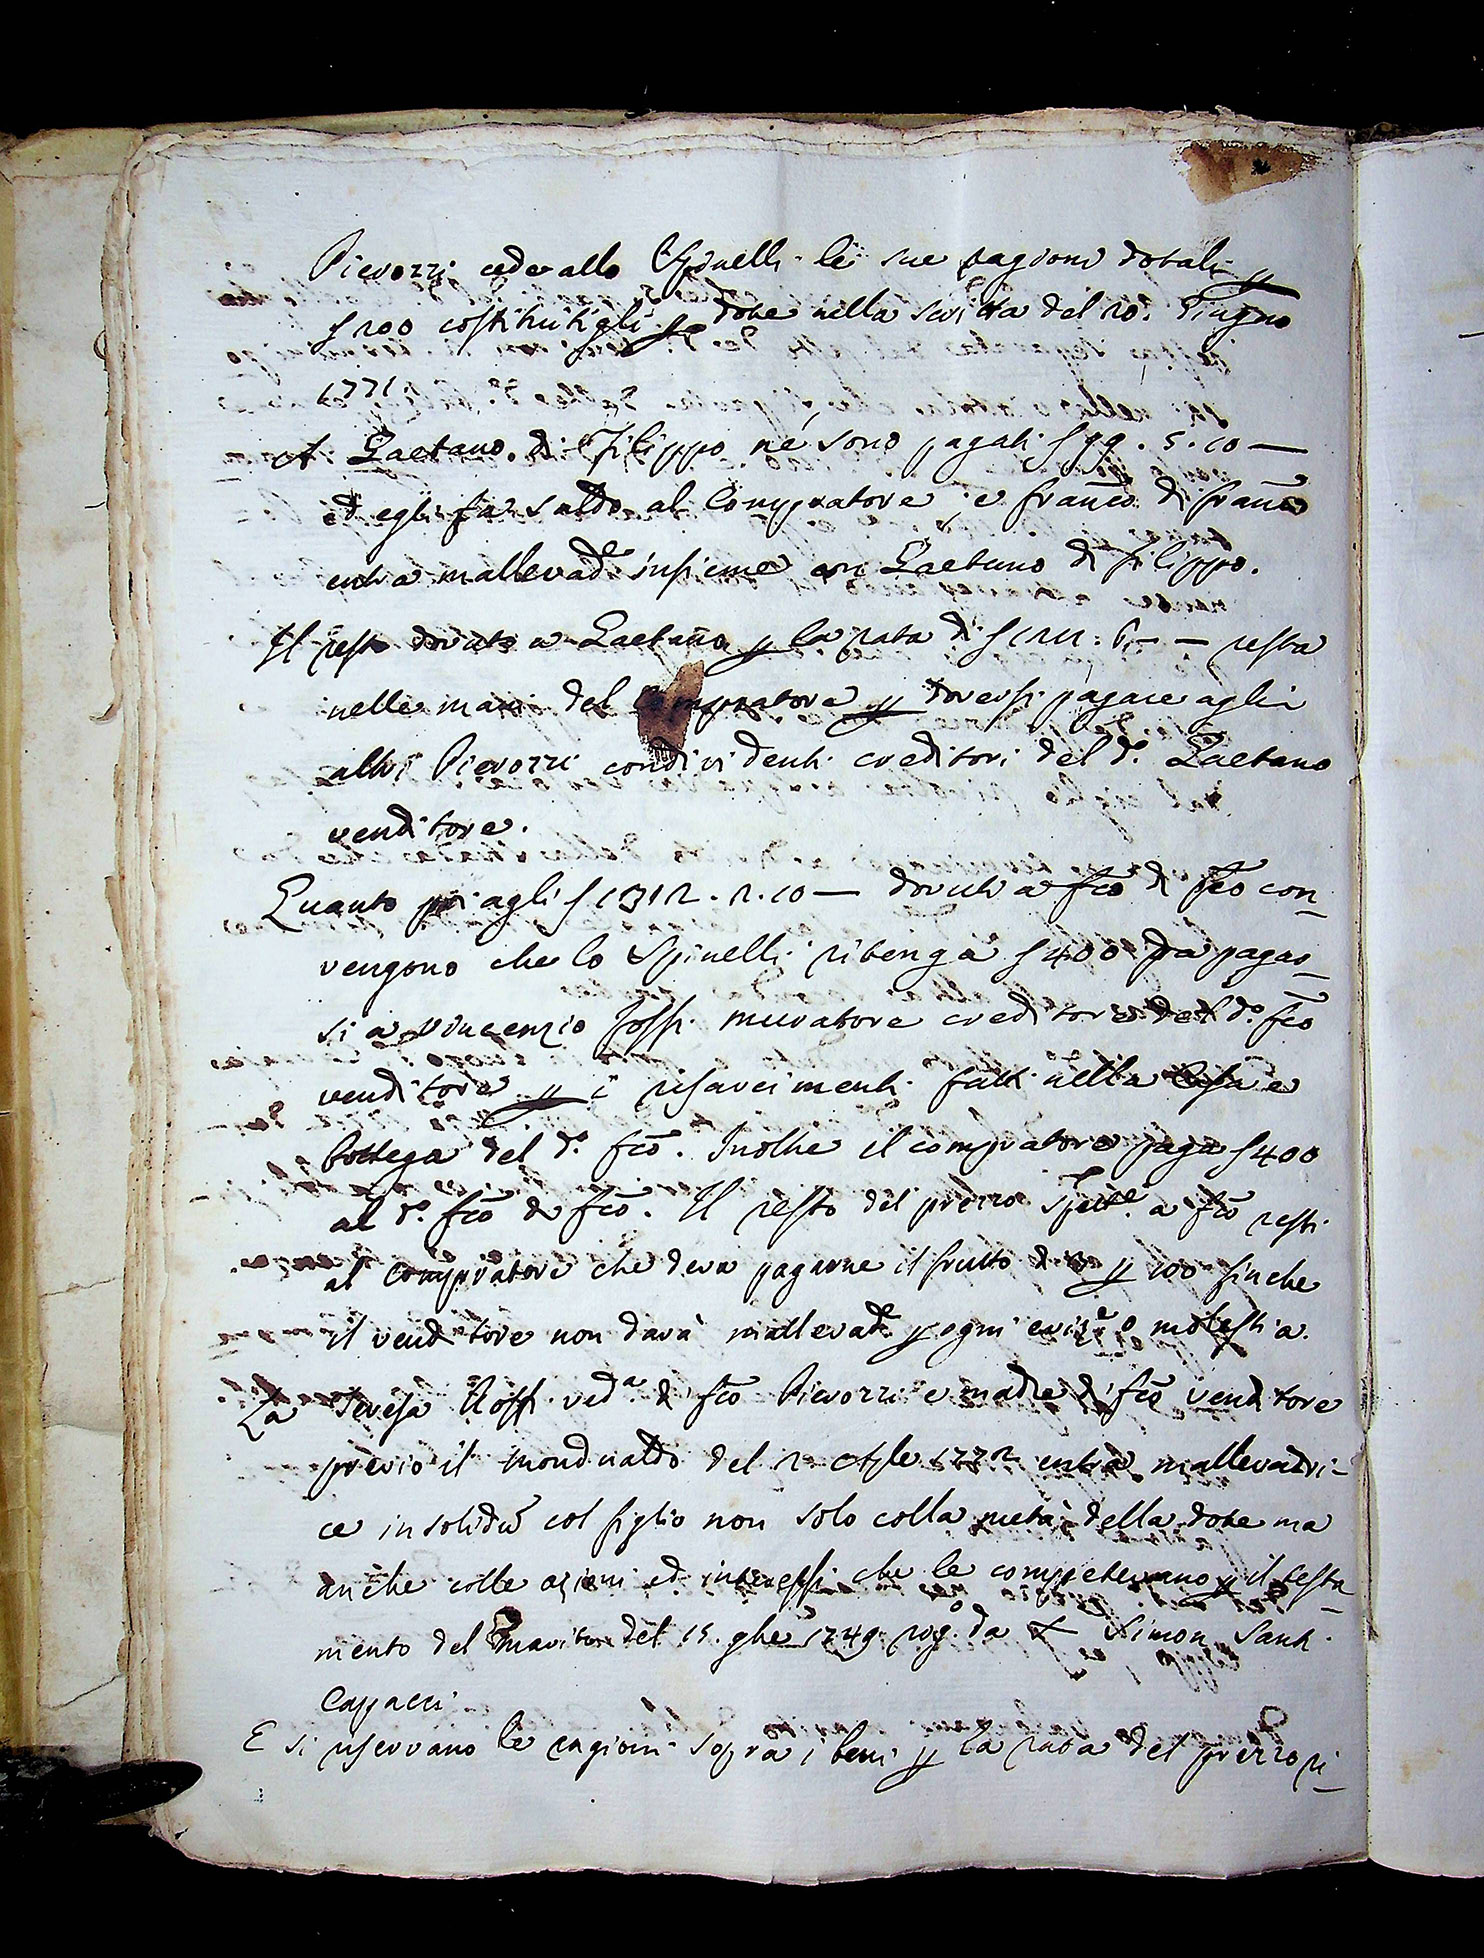 Pievozzi cede allo Spinelli le sue ragioni dotali p
ʃ 200 costituitigli p dote nella scritta del 20. Giugno
1771.
A Gaetano di Filippo ne sono pagati ʃ 99. 5. 10 —
ed egli fa saldo al Compratore, e Franco di Franco
entra mallevad.e insieme con Gaetano di Filippo.
Il resto dovuto a Gaetano p la rata di ʃ 6. — — resta
nelle mani del Compratore p doversi pagare agli
altri Pievozzi condividenti creditori del d.o Gaetano
venditore.
Quanto poi agli ʃ 1312. 2. 10 — dovuti a Fco di Fco con-
vengono che lo Spinelli ritenga ʃ 400 da pagar-
si a Vincenzio Rossi muratore creditore del d.o Fco
venditore p i risarcimenti fatti nella Casa e
bottega del d.o Fco. Inoltre il compratore paga ʃ 400
al d.o Fco di Fco. Il resto del prezzo spett.e a Fco resti
al compratore che deva pagarne il frutto di 3 p 100 finche
il venditore non darà mallevad.e p ogni eviz.e o molestia.
La Teresa Rossi ved.a di Fco Pievozzi e madre di Fco venditore
previo il mondualdo del 2 Aple 1772 entra mallevadri-
ce in solidũ col figlio non solo colla metà della dote ma
anche colle azioni ed interessi che le competevano p il testa-
mento del marito del 15. 9bre 1749 rog.o da Simon Santi
Cappacci
E si riservano le ragioni sopra i beni p la rata del prezzo ri-